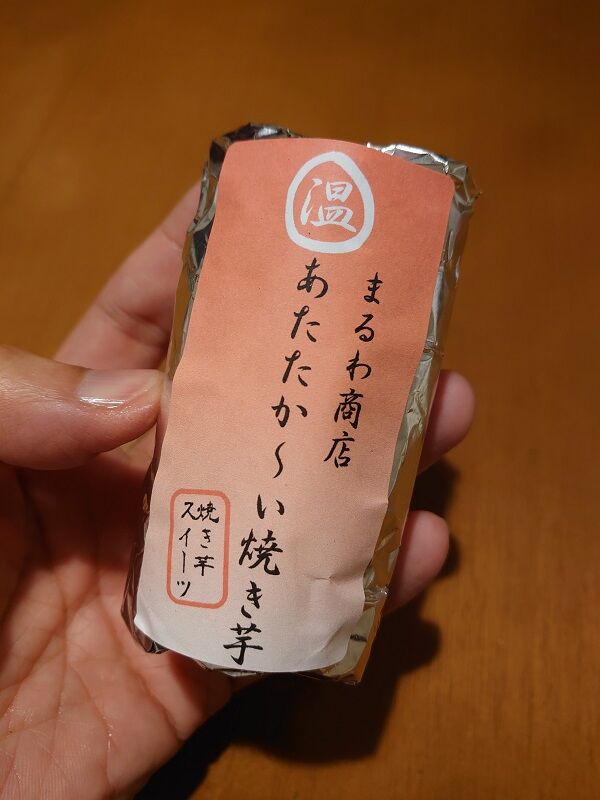 温
まるわ商店
あたたか～い焼き芋
焼き芋
スイーツ